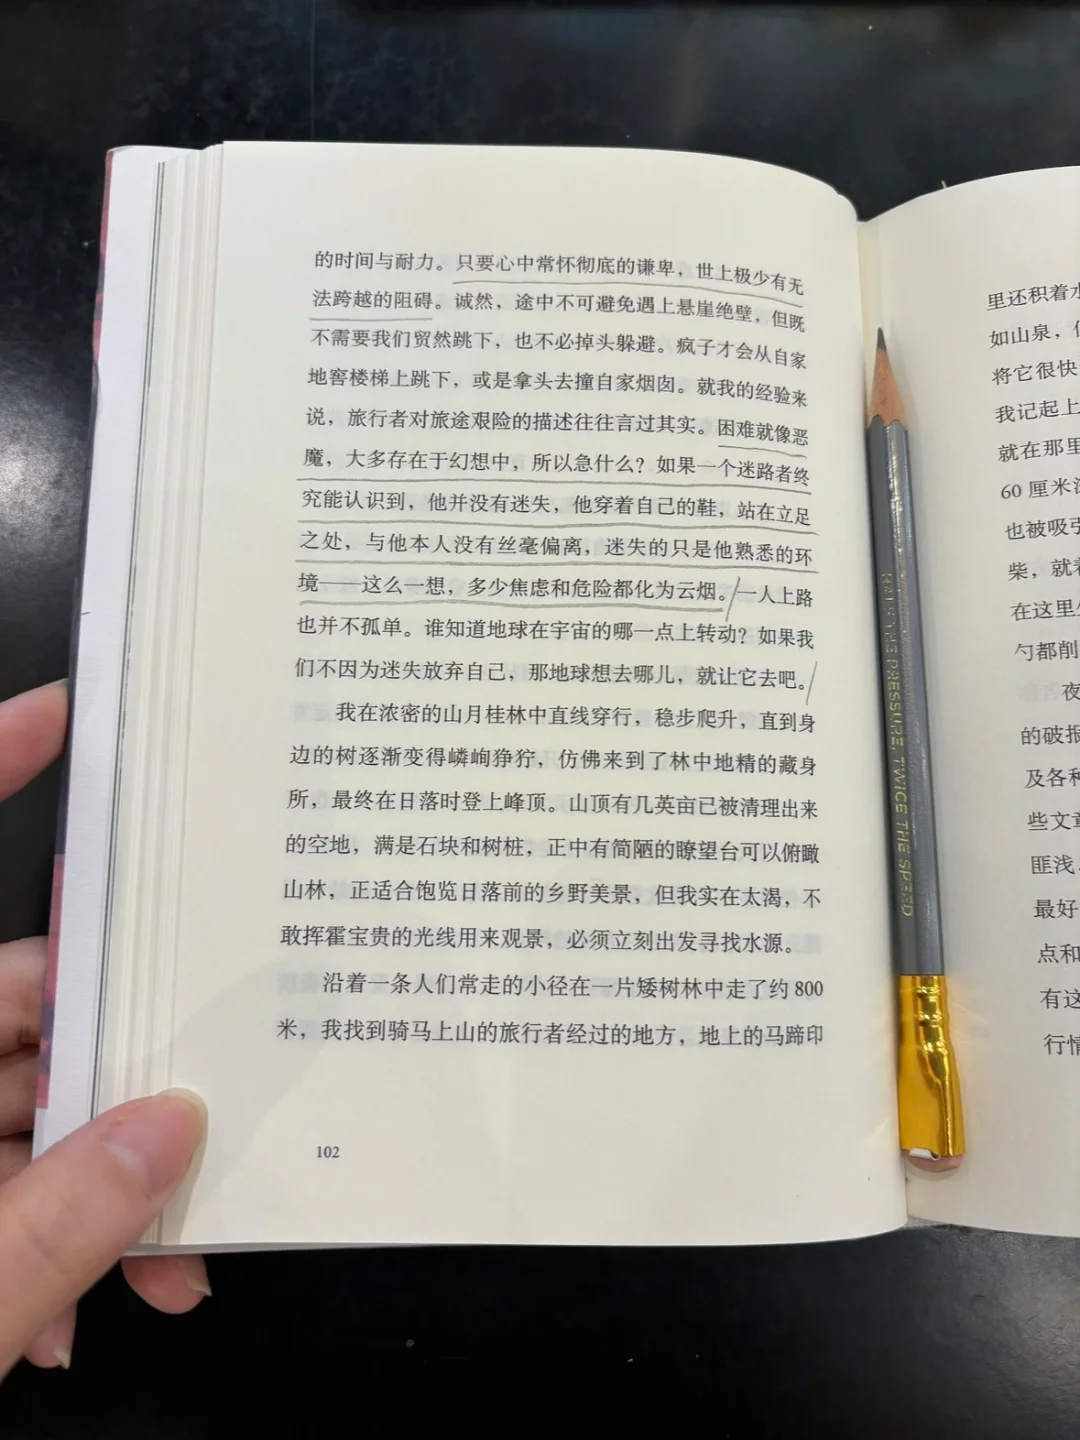 的时间与耐力。只要心中常怀彻底的谦卑，世上极少有无
法跨越的阻碍。诚然，途中不可避免遇上悬崖绝壁，但既
不需要我们贸然跳下，也不必掉头躲避。疯子才会从自家
地窖楼梯上跳下，或是拿头去撞自家烟囱。就我的经验来
说，旅行者对旅途艰险的描述往往言过其实。困难就像恶
魔，大多存在于幻想中，所以急什么？如果一个迷路者终
究能认识到，他并没有迷失，他穿着自己的鞋，站在立足
之处，与他本人没有丝毫偏离，迷失的只是他熟悉的环
境——这么一想，多少焦虑和危险都化为云烟。一人上路
也并不孤单。谁知道地球在宇宙的哪一点上转动？如果我
们不因为迷失放弃自己，那地球想去哪儿，就让它去吧。
我在浓密的山月桂林中直线穿行，稳步爬升，直到身
边的树逐渐变得嶙峋狰狞，仿佛来到了林中地精的藏身
所，最终在日落时登上峰顶。山顶有几英亩已被清理出来
的空地，满是石块和树桩，正中有简陋的瞭望台可以俯瞰
山林，正适合饱览日落前的乡野美景，但我实在太渴，不
敢挥霍宝贵的光线用来观景，必须立刻出发寻找水源。
沿着一条人们常走的小径在一片矮树林中走了约 800
米，我找到骑马上山的旅行者经过的地方，地上的马蹄印
102
HALF THE PRESSURE, TWICE THE SPEED
里还积着水
如山泉，
将它很快
我记起上
就在那里
60 厘米
也被吸引
柴，就着
在这里
勺都削
夜
的破报
及各种
些文章
匪浅，
最好
点和
有这
行情